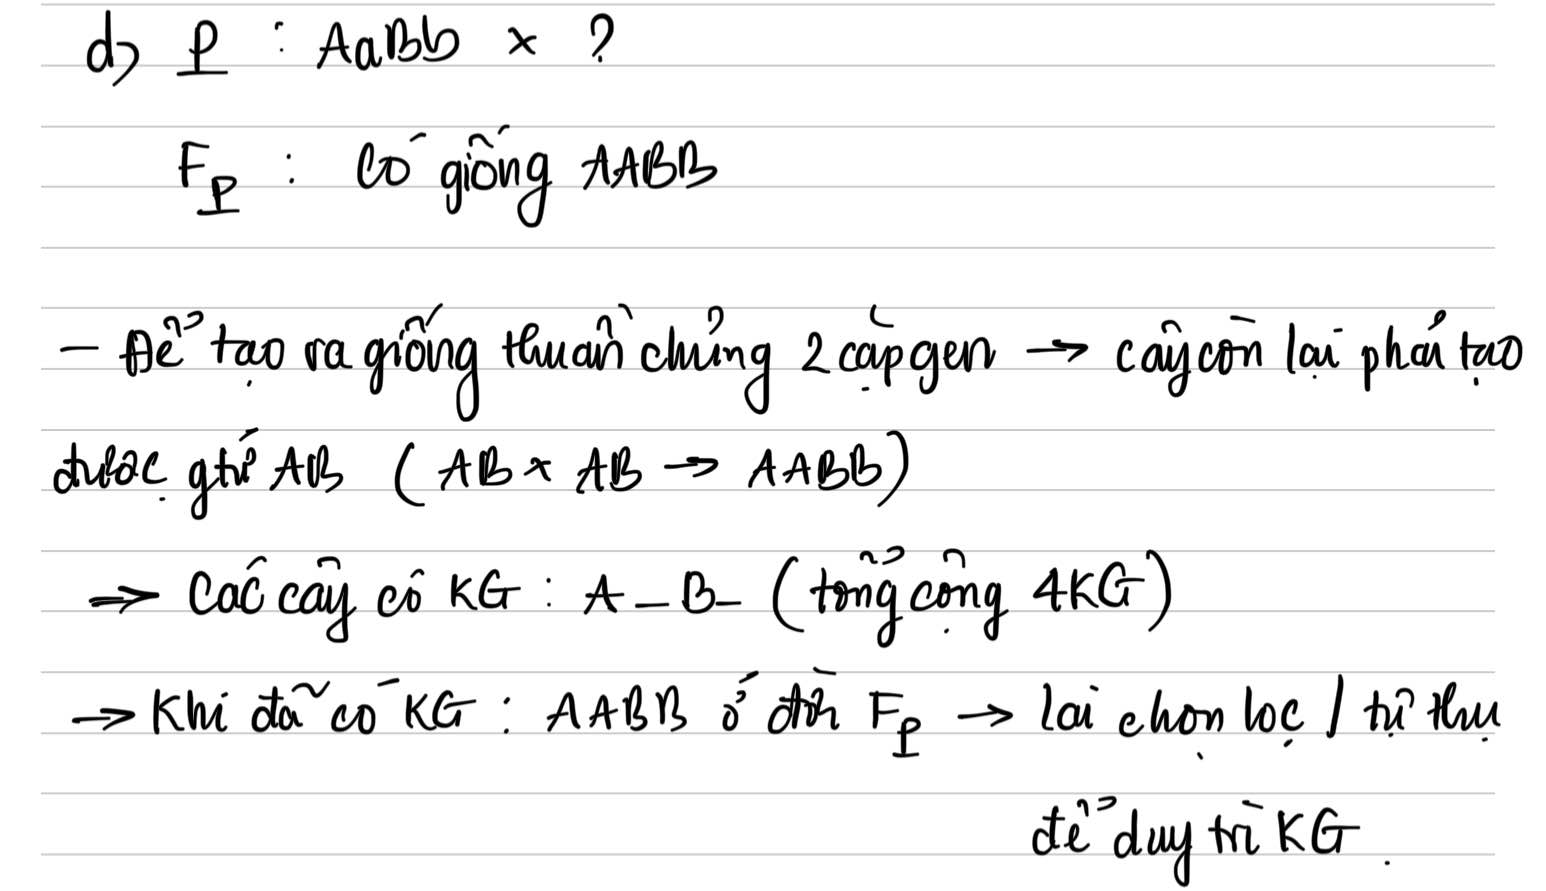 d) P : AaBb x ?
F_P : Có giống AABB
- Để tạo ra giống thuần chủng 2 cặp gen → cây còn lại phải tạo
được gtử AB ( AB x AB → AABB)
→ Các cây có KG : A_B_ (tổng cộng 4KG)
→ Khi đã có KG : AABB ở đời F_P → lai chọn lọc / tự thụ
để duy trì KG.